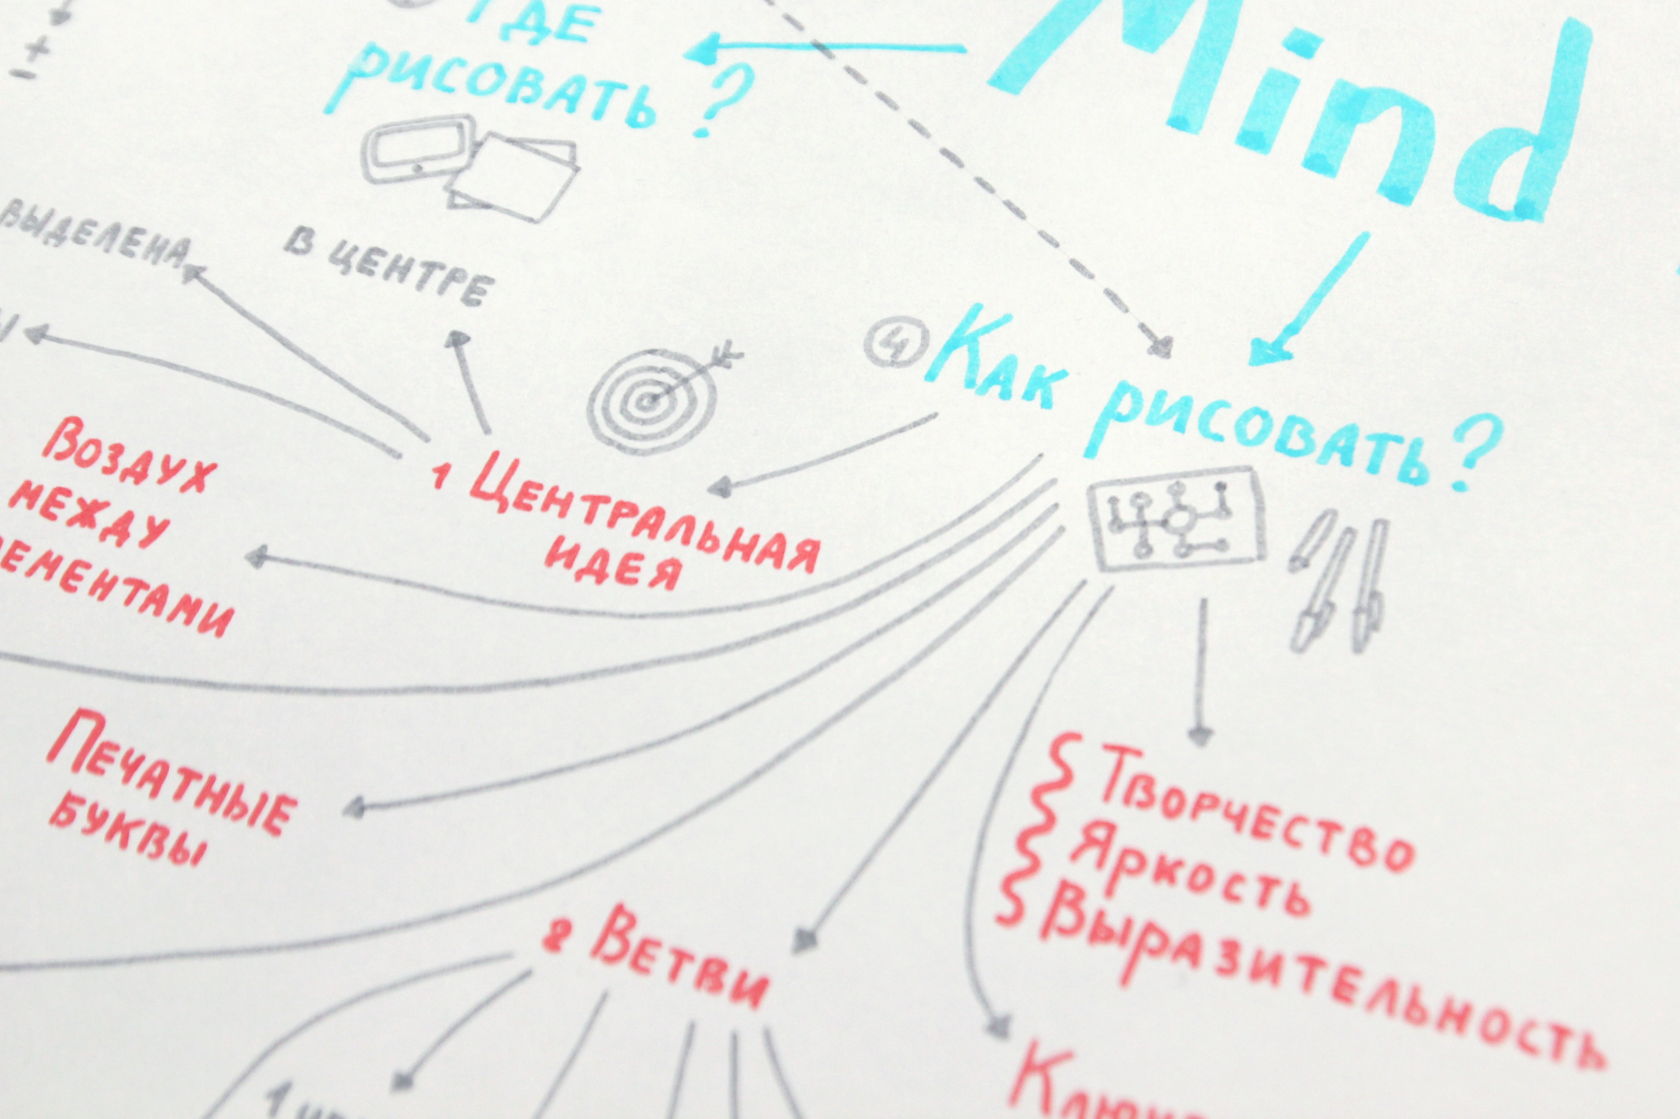 Mind
ГДЕ
РИСОВАТЬ?
±
ВЫДЕЛЕНА
В ЦЕНТРЕ
4 КАК РИСОВАТЬ?
1 ЦЕНТРАЛЬНАЯ
ИДЕЯ
ВОЗДУХ
МЕЖДУ
ЕМЕНТАМИ
ПЕЧАТНЫЕ
БУКВЫ
ТВОРЧЕСТВО
ЯРКОСТЬ
ВЫРАЗИТЕЛЬНОСТЬ
2 ВЕТВИ